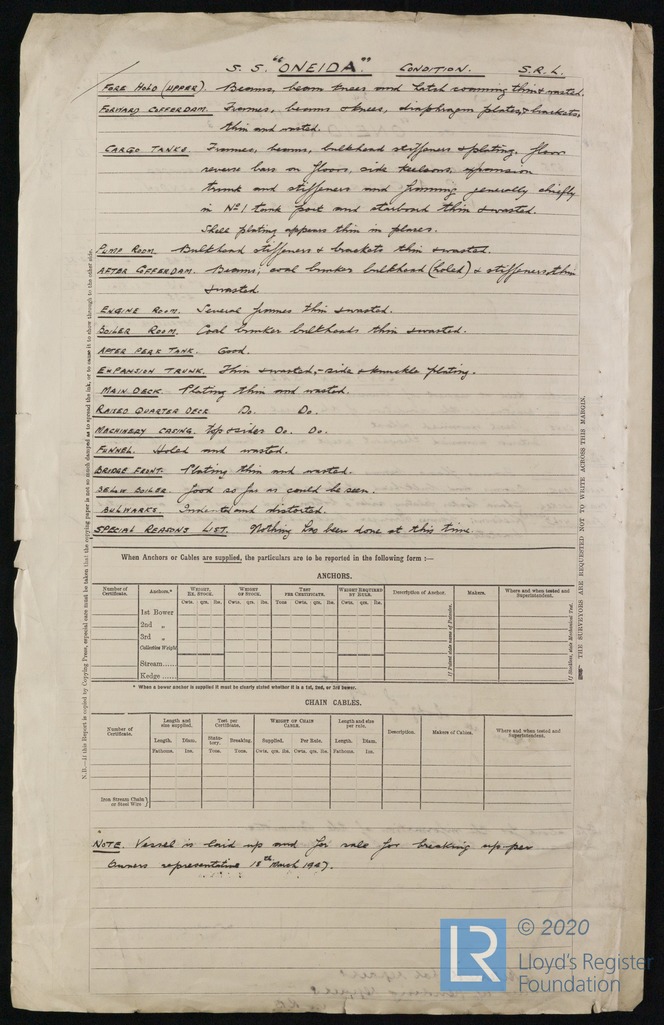 S. S. "ONEIDA" CONDITION. S.R.L.
FORE HOLD (UPPER). Beams, beam knees and hatch coaming thin & wasted.
FORWARD COFFERDAM. Frames, beams & knees, diaphragm plates & brackets,
thin and wasted.
CARGO TANKS. Frames, beams, bulkhead stiffeners & plating. floor
reverse bars on floors, side keelsons, expansion
trunk and stiffeners and framing generally chiefly
in No 1 tank port and starboard thin & wasted.
Shell plating appears thin in places.
PUMP ROOM. Bulkhead stiffeners & brackets thin & wasted.
AFTER COFFERDAM. Beams, coal bunker bulkhead (holed) & stiffeners thin
& wasted
ENGINE ROOM. Several frames thin & wasted.
BOILER ROOM. Coal bunker bulkheads thin & wasted.
AFTER PEAK TANK. Good.
EXPANSION TRUNK. Thin & wasted, - side & knuckle plating.
MAIN DECK. Plating thin and wasted.
RAISED QUARTER DECK Do. Do.
MACHINERY CASING. top & sides Do. Do.
FUNNEL. Holed and wasted.
BRIDGE FRONT. Plating thin and wasted.
BELOW BOILER. Good so far as could be seen.
BULWARKS. Indented and distorted.
SPECIAL REASONS LIST. Nothing has been done at this time.
When Anchors or Cables are supplied, the particulars are to be reported in the following form :—
ANCHORS.
Number of Certificate. Anchors.* WEIGHT, EX. STOCK. WEIGHT OF STOCK. TEST PER CERTIFICATE. WEIGHT REQUIRED BY RULE. Description of Anchor. Makers. Where and when tested and Superintendent.
Cwts. qrs. lbs. Cwts. qrs. lbs. Tons Cwts. qrs. lbs. Cwts. qrs. lbs.
1st Bower
2nd „
3rd „
Collective Weight
Stream......
Kedge......
If Patent state name of Patentee.
If Stockless, state Mechanical Test.
* When a bower anchor is supplied it must be clearly stated whether it is a 1st, 2nd, or 3rd bower.
CHAIN CABLES.
Number of Certificate. Length and size supplied. Test per Certificate. WEIGHT OF CHAIN CABLE. Length and size per rule. Description. Makers of Cables. Where and when tested and Superintendent.
Length. Diam. Statutory. Breaking. Supplied. Per Rule. Length. Diam.
Fathoms. Ins. Tons. Tons. Cwts. qrs. lbs. Cwts. qrs. lbs. Fathoms. Ins.
Iron Stream Chain or Steel Wire
NOTE. Vessel is laid up and for sale for breaking up per
Owners representative 18th March 1947.
N.B.—If this Report is copied by Copying Press, especial care must be taken that the copying paper is not so much damped as to spread the ink, or to cause it to show through to the other side.
THE SURVEYORS ARE REQUESTED NOT TO WRITE ACROSS THIS MARGIN.
LR
© 2020
Lloyd's Register
Foundation